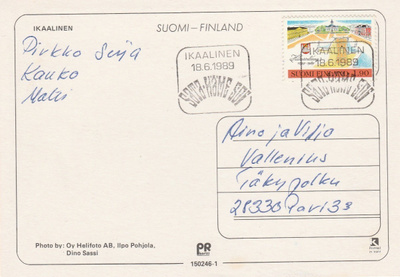 IKAALINEN
SUOMI – FINLAND
Pirkko Seija
Kauko
Matti
IKAALINEN
18.6.1989
SATA-HÄME SOI
IKAALINEN
18.6.1989
SATA-HÄME SOI
SUOMI FINLAND 1.90
Aino ja Viljo
Vallenius
Täkypolku
28330 Pori 33
Photo by: Oy Helifoto AB, Ilpo Pohjola,
Dino Sassi
PR
150246-1